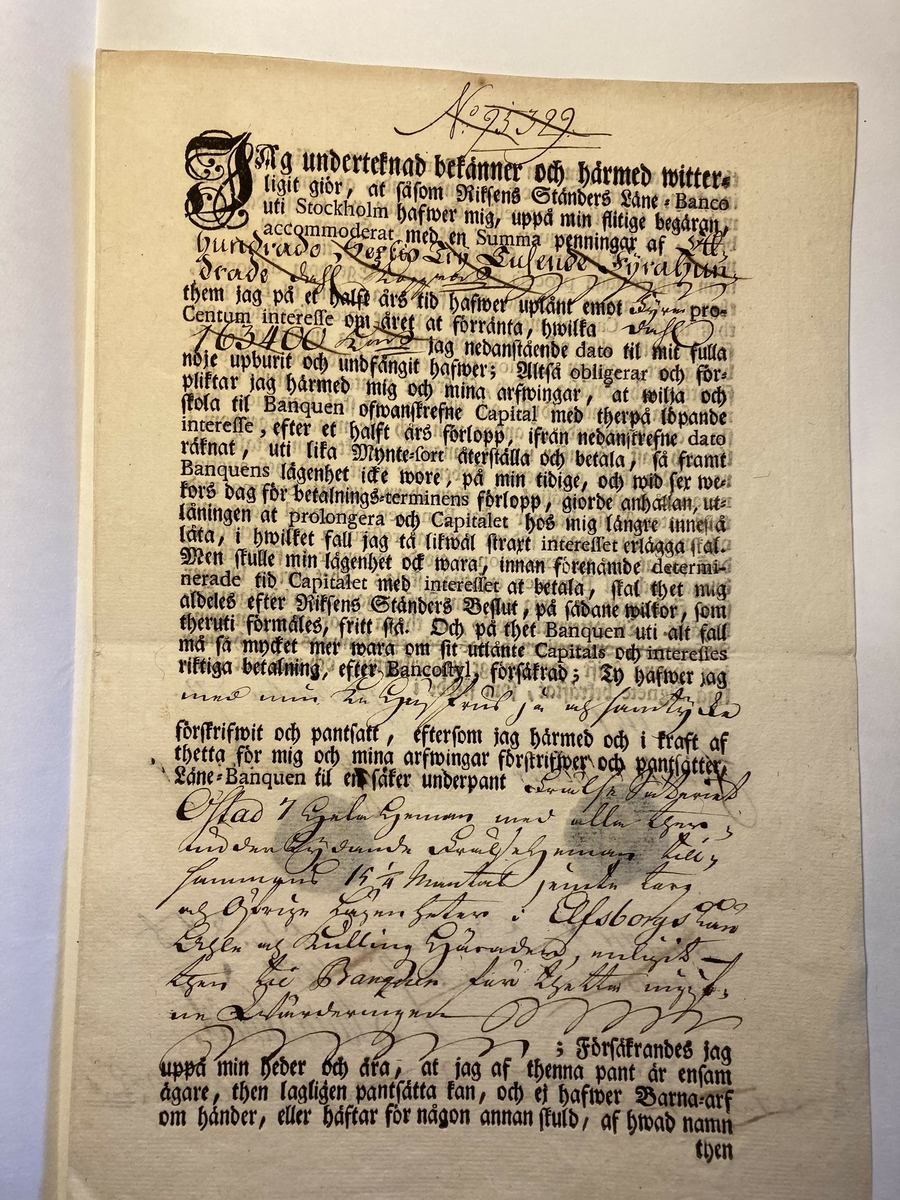 No 95329
JAg underteknad bekånner och hårmed witter-
ligit giör, at såsom Riksens Ständers Låne-Banco
uti Stockholm hafwer mig, uppå min flitige begåran,
accommoderat med en Summa penningar af Ett
hundrade Sextio Try Tusende Fyrahun
drade dahl
them jag på et halft års tid hafwer uplånt emot Fyra pro-
Centum interesse om året at förrånta, hwilka Dahl
163400 jag nedanstående dato til mit fulla
nöje upburit och undfångit hafwer; Altså obligerar och för-
pliktar jag hårmed mig och mina arfwingar, at wilja och
skola til Banquen ofwanskrefne Capital med therpå löpande
interesse, efter et halft års förlopp, ifrån nedanskrefne dato
råknat, uti lika Mynte-sort återstålla och betala, så framt
Banquens lågenhet icke wore, på min tidige, och wid sex we-
kors dag för betalnings-terminens förlopp, giorde anhållan, ut-
låningen at prolongera och Capitalet hos mig långre innestå
låta, i hwilket fall jag tå likwål straxt interesset erlågga skal.
Men skulle min lågenhet ock wara, innan förenåmde determi-
nerade tid Capitalet med interesset at betala, skal thet mig
aldeles efter Riksens Stånders Beslut, på sådane wilkor, som
theruti förmåles, fritt stå. Och på thet Banquen uti alt fall
må så mycket mer wara om sit utlånte Capitals och interesses
riktiga betalning, efter Bancostyl, försåkrad; Ty hafwer jag
med min K. Hus Frus ja och samtycke
förskrifwit och pantsatt, eftersom jag hårmed och i kraft af
thetta för mig och mina arfwingar förskrifwer och pantsåtter,
Låne-Banquen til en såker underpant Frälse Säteriet
Östad 7 Hela Heman med alla ther-
under lydande FrälseHeman till-
sammans 15 1/4 Mantal jemte torp
och Öfrige Lägenheter i Elfsborgs Län
Ahle och Kulling Härader, enligit
then til Banquen för thetta ingif-
ne Wärderingen
; Försåkrandes jag
uppå min heder och åra, at jag af thenna pant år ensam
ågare, then lagligen pantsåtta kan, och ej hafwer Barna-arf
om hånder, eller håftar för någon annan skuld, af hwad namn
then